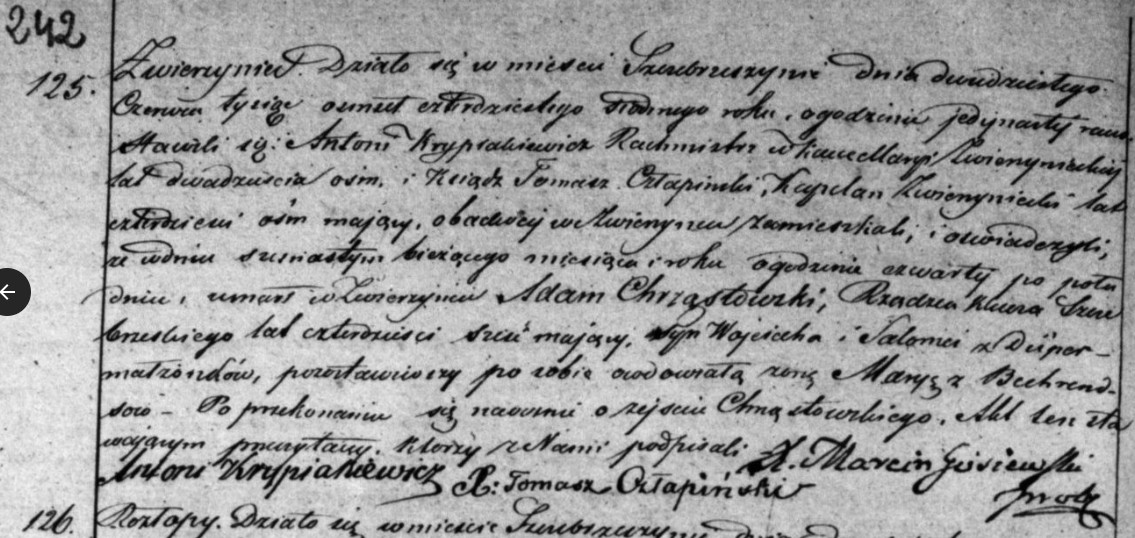 242
125. Zwierzyniec. Działo się w mieście Szczebrzeszynie dnia dwudziestego
Czerwca tysiąc osmset czterdziestego siodmego roku, o godzinie jedynasty rano
Stawili się: Antoni Krypiakiewicz Rachmistrz w Kancellaryi Zwierzynieckiej
lat dwadzieścia ośm, i Ksiądz Tomasz Człapinski, Kapelan Zwierzyniecki lat
czterdzieści ośm mający, obadwaj w Zwierzyncu zamieszkali, i oswiadczyli,
że w dniu szesnastym bieżącego miesiąca i roku o godzinie czwarty po połu
dniu, umarł w Zwierzyncu Adam Chrząstowski, Rządzca klucza Szcze
brzeskiego lat czterdzieści sześć mający, syn Wojciecha i Salomei z
małżonków, pozostawiwszy po sobie owdowiałą żonę Maryę z Bechrend-
sow - Po przekonaniu się naocznie o zejściu Chrząstowskiego. Akt ten sta
wającym przeczytany, ktorzy z Nami podpisali
Antoni Krypiakiewicz X: Tomasz Człapiński X. Marcin Gosiewski
126. Rozłopy. Działo się w mieście Szczebrzeszynie